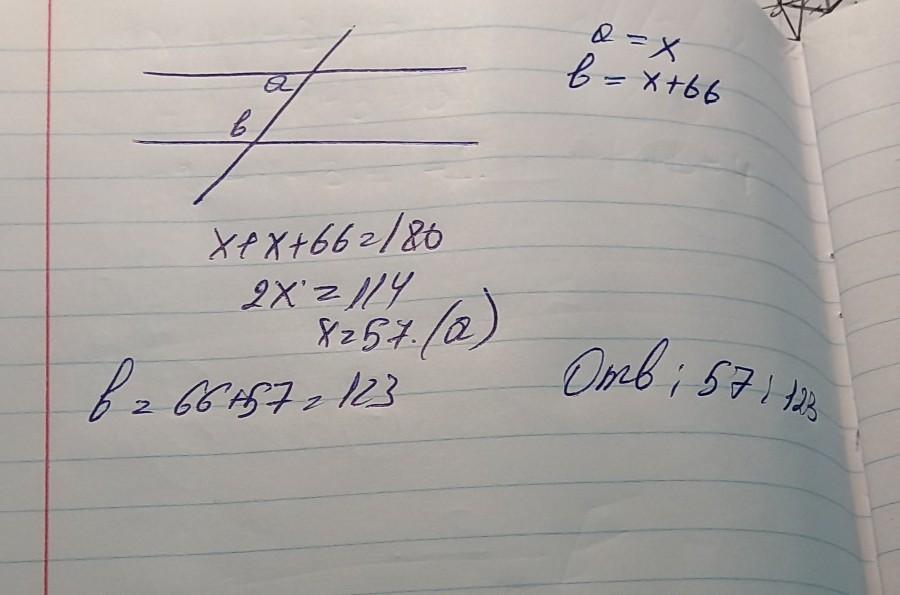 a = x
в = x+66
a
в
x+x+66=180
2x = 114
x=57. (a)
в = 66+57 = 123
Отв: 57; 123